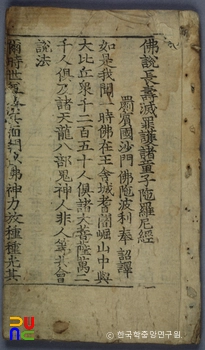 佛說長壽滅罪護諸童子陁羅尼經
罽賓國沙門佛陁波利奉 詔譯
如是我聞一時佛在王舍城耆闍崛山中與
大比丘衆千二百五十人俱諸大菩薩萬二
千人俱及諸天龍八部鬼神人非人等共會
說法
爾時世尊 面 佛神力放種種光其
한국학중앙연구원